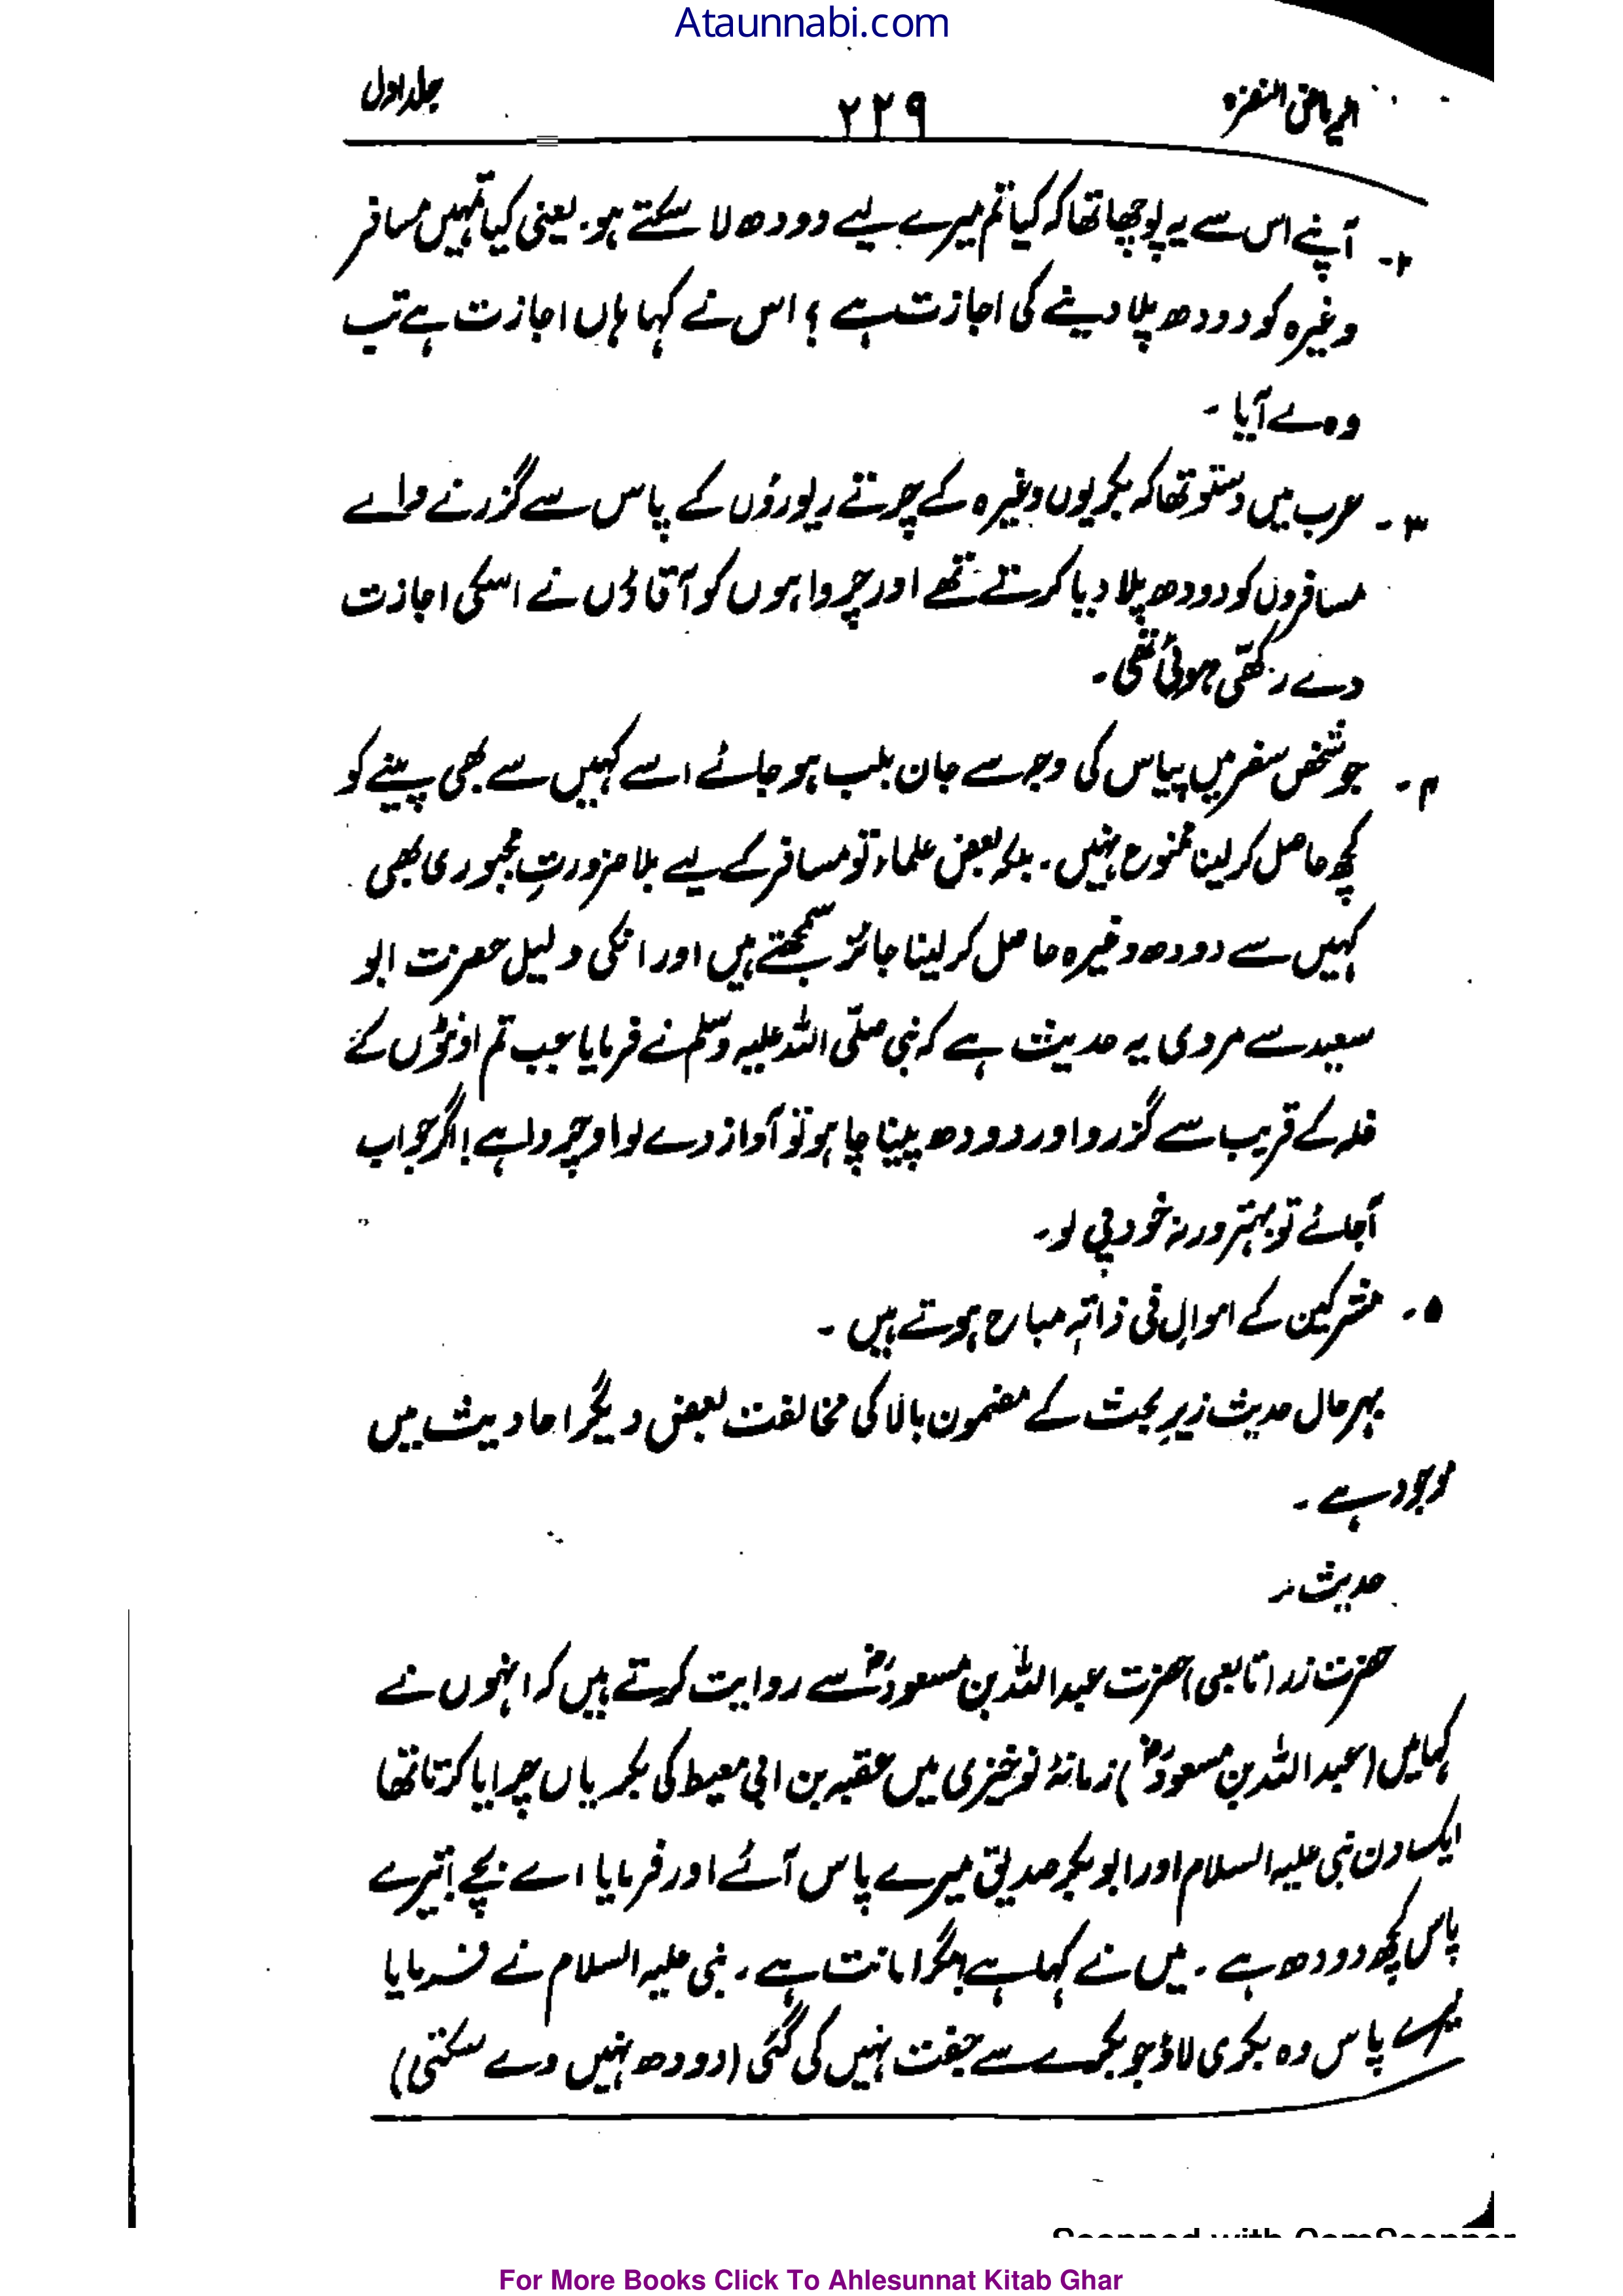 Ataunnabi.com
الریاض النضرہ ۲۲۹ جلد اول
۲۔ آپنے اس سے یہ پوچھا تھا کہ کیا تم میرے لیے دودھ لا سکتے ہو۔ یعنی کیا تمہیں مسافر
وغیرہ کو دودھ پلا دینے کی اجازت ہے؟ اس نے کہا ہاں اجازت ہے تب
وہ لے آیا۔
۳۔ عرب میں دستور تھا کہ بکریوں وغیرہ کے چرتے ریوڑوں کے پاس سے گزرنے والے
مسافروں کو دودھ پلا دیا کرتے تھے اور چرواہوں کو آقاؤں نے اسکی اجازت
دے رکھی ہوئی تھی۔
۴۔ جو شخص سفر میں پیاس کی وجہ سے جان بلب ہو جائے اسے کہیں سے بھی پینے کو
کچھ حاصل کر لینا ممنوع نہیں۔ بلکہ بعض علماء تو مسافر کے لیے بلا ضرورتِ مجبوری بھی
کہیں سے دودھ وغیرہ حاصل کر لینا جائز سمجھتے ہیں اور انکی دلیل حضرت ابو
سعید سے مروی یہ حدیث ہے کہ نبی صلّی اللہ علیہ وسلّم نے فرمایا جب تم اونٹوں کے
گلہ کے قریب سے گزرو اور دودھ پینا چاہو تو آواز دے لو او چرواہے! اگر جواب
آجائے تو بہتر ورنہ خود پی لو۔
۵۔ مشرکین کے اموال فی ذاتہٖ مباح ہوتے ہیں۔
بہر حال حدیث زیرِ بحث کے مضمون بالا کی مخالفت بعض دیگر احادیث میں
موجود ہے۔
حدیث :۔
حضرت زر (تابعی) حضرت عبداللہ بن مسعودؓ سے روایت کرتے ہیں کہ انہوں نے
کہا میں (عبداللہ بن مسعودؓ) زمانۂ نوخیزی میں عقبہ بن ابی معیط کی بکریاں چرایا کرتا تھا
ایک دن نبی علیہ السلام اور ابوبکر صدیق میرے پاس آئے اور فرمایا اے بچے! تیرے
پاس کچھ دودھ ہے۔ میں نے کہا ہے! مگر امانت ہے۔ نبی علیہ السلام نے فرمایا
میرے پاس وہ بکری لاؤ جو بکرے سے جفت نہیں کی گئی (دودھ نہیں دے سکتی)
Scanned with CamScanner
For More Books Click To Ahlesunnat Kitab Ghar